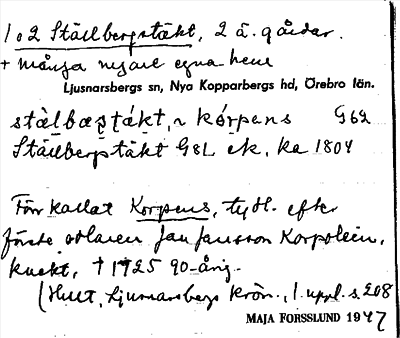 1 o 2 Ställbergstäkt, 2 ä. gårdar.
+ många nyare egna hem
Ljusnarsbergs sn, Nya Kopparbergs hd, Örebro län.
stälbæṣṭákt, ~ kórpens G62
Ställbergstäkt GSL ek. ka 1804
Förr kallat Korpens, tydl. efter
förste odlaren Jan Jansson Korpolein,
knekt, † 1725 90-årig.
(Hult, Ljusnarsbergs krön., 1. uppl. s. 208
MAJA FORSSLUND 1947